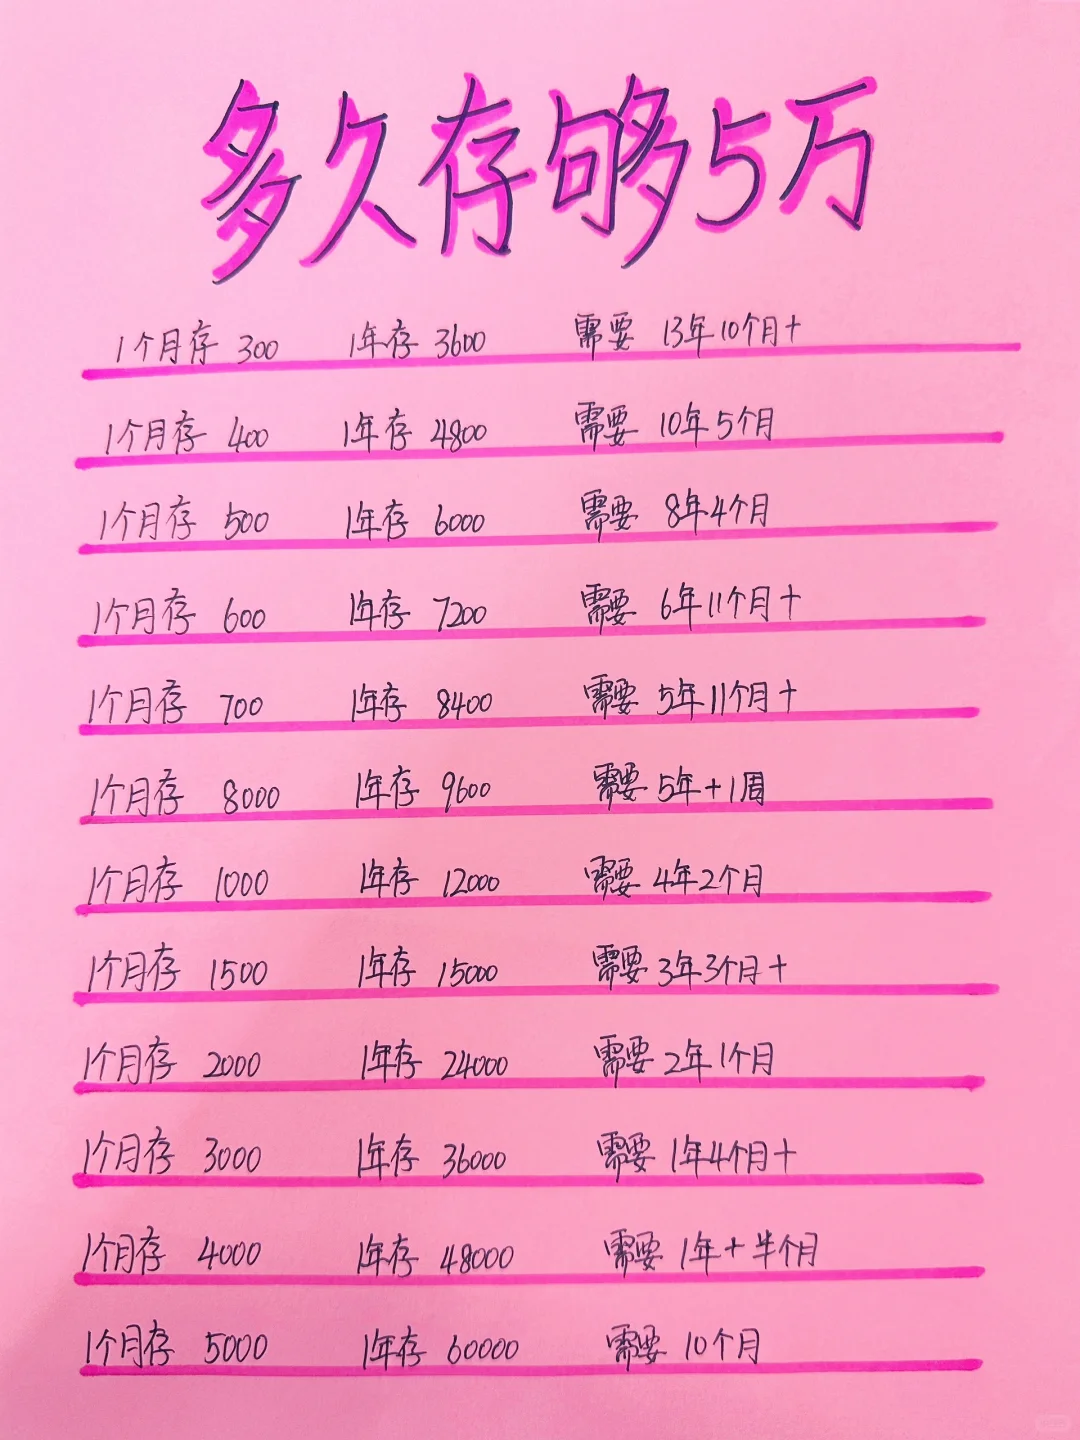 多久存够5万
1个月存 300 1年存 3600 需要 13年10个月+
1个月存 400 1年存 4800 需要 10年5个月
1个月存 500 1年存 6000 需要 8年4个月
1个月存 600 1年存 7200 需要 6年11个月+
1个月存 700 1年存 8400 需要 5年11个月+
1个月存 8000 1年存 9600 需要 5年+1周
1个月存 1000 1年存 12000 需要 4年2个月
1个月存 1500 1年存 15000 需要 3年3个月+
1个月存 2000 1年存 24000 需要 2年1个月
1个月存 3000 1年存 36000 需要 1年4个月+
1个月存 4000 1年存 48000 需要 1年+半个月
1个月存 5000 1年存 60000 需要 10个月